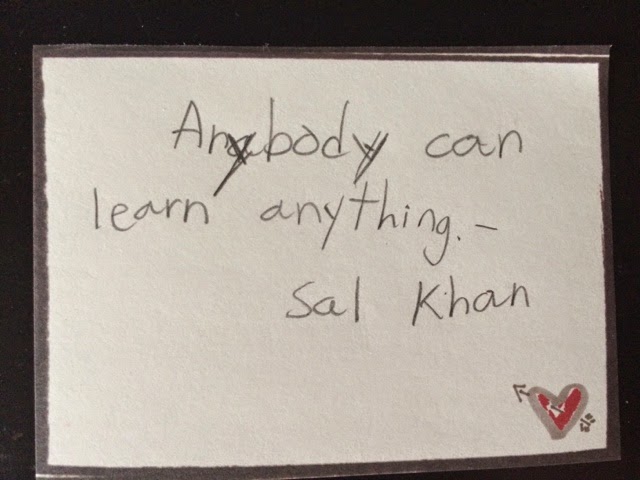 Anybody can
learn anything. -
Sal Khan